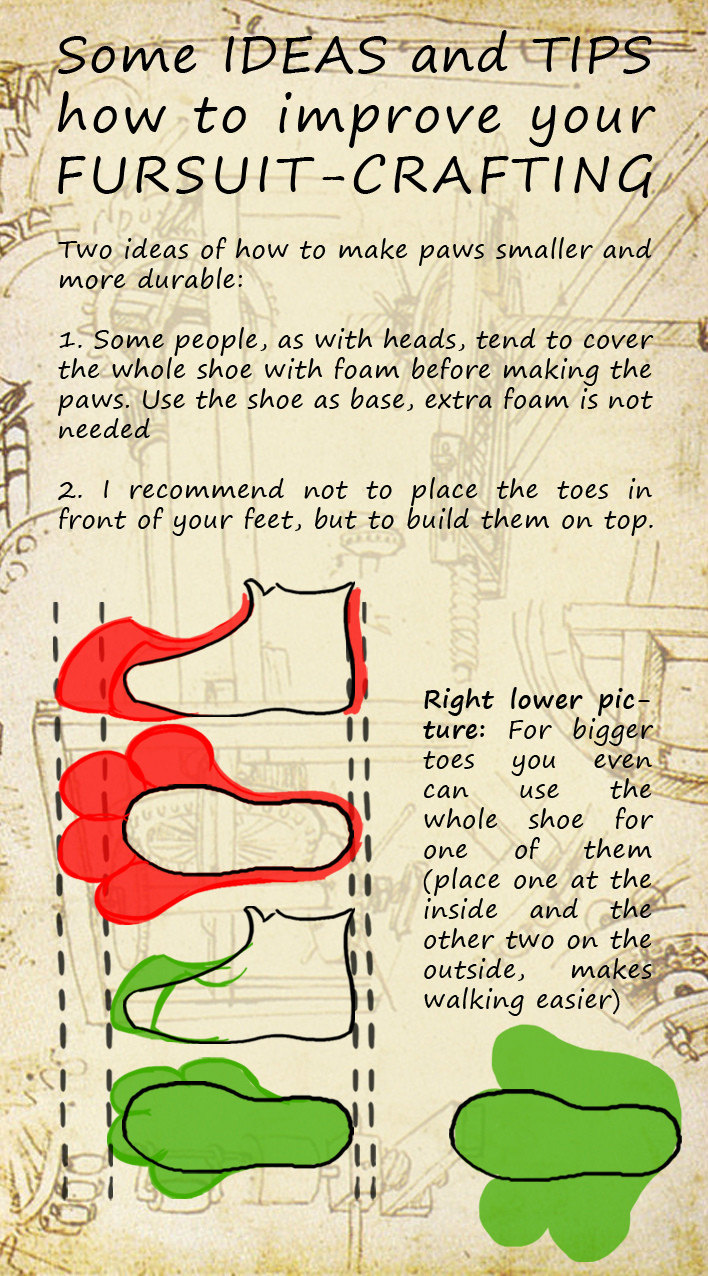 Some IDEAS and TIPS
how to improve your
FURSUIT-CRAFTING
Two ideas of how to make paws smaller and
more durable:
1. Some people, as with heads, tend to cover
the whole shoe with foam before making the
paws. Use the shoe as base, extra foam is not
needed
2. I recommend not to place the toes in
front of your feet, but to build them on top.
Right lower pic-
ture: For bigger
toes you even
can use the
whole shoe for
one of them
(place one at the
inside and the
other two on the
outside, makes
walking easier)